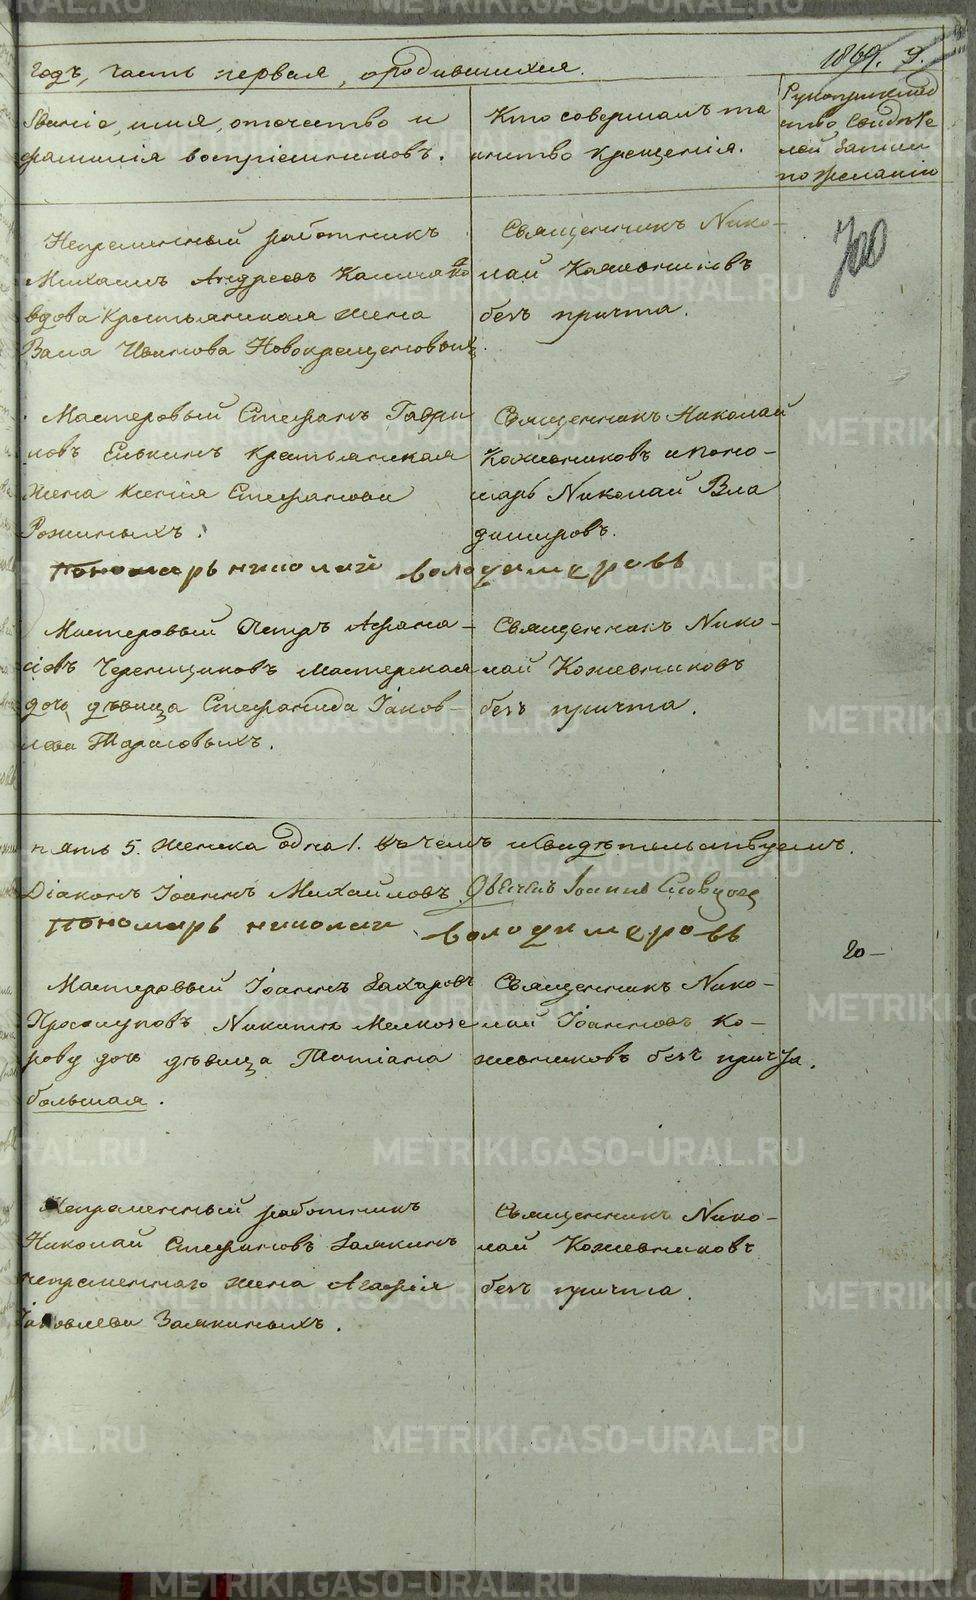 годъ, часть первая, ородившихся.
1869. 9.
Званіе, имя, отчество и
фамилія воспріемниковъ.
Кто совершалъ та
инство крещенія.
Рукоприклад
ство свидѣте
лей записи
по желанію
Непременный работникъ
Михаилъ Андреевъ
вдова Крестьянская жена
Иванова Новокрещеновыхъ
Священникъ Нико-
лай Кожевниковъ
безъ причта.
700
Мастеровый Стефанъ Гаври
ловъ Елькинъ крестьянская
жена Ксенія Стефанова
Рожиныхъ.
Священникъ Николай
Кожевниковъ и поно-
марь Николай Вла
димировъ.
Пономарь николай володимеровъ
Мастеровый Петръ Афана-
сіевъ Черепщиковъ мастерская
дочь дѣвица Стефанида Іаков-
лева Тарасовыхъ.
Священникъ Нико-
лай Кожевниковъ
безъ причта.
пять 5. женска одна 1. въ чемъ и свидѣтельствуемъ.
Діаконъ Іоаннъ Михайловъ. Іоаннъ Словцовъ
Пономарь николай володимеровъ
20-
Мастеровый Іоаннъ Захаровъ
Никиты Мелкозе
рову дочь дѣвица Татіана
большая.
Священникъ Нико-
лай Іоанновъ Ко-
жевниковъ безъ причта.
Непременный работникъ
Николай Стефановъ Замкинъ
непременнаго жена Агафія
Іаковлева Замкиныхъ.
Священникъ Нико-
лай Кожевниковъ
безъ причта.
METRIKI.GASO-URAL.RU